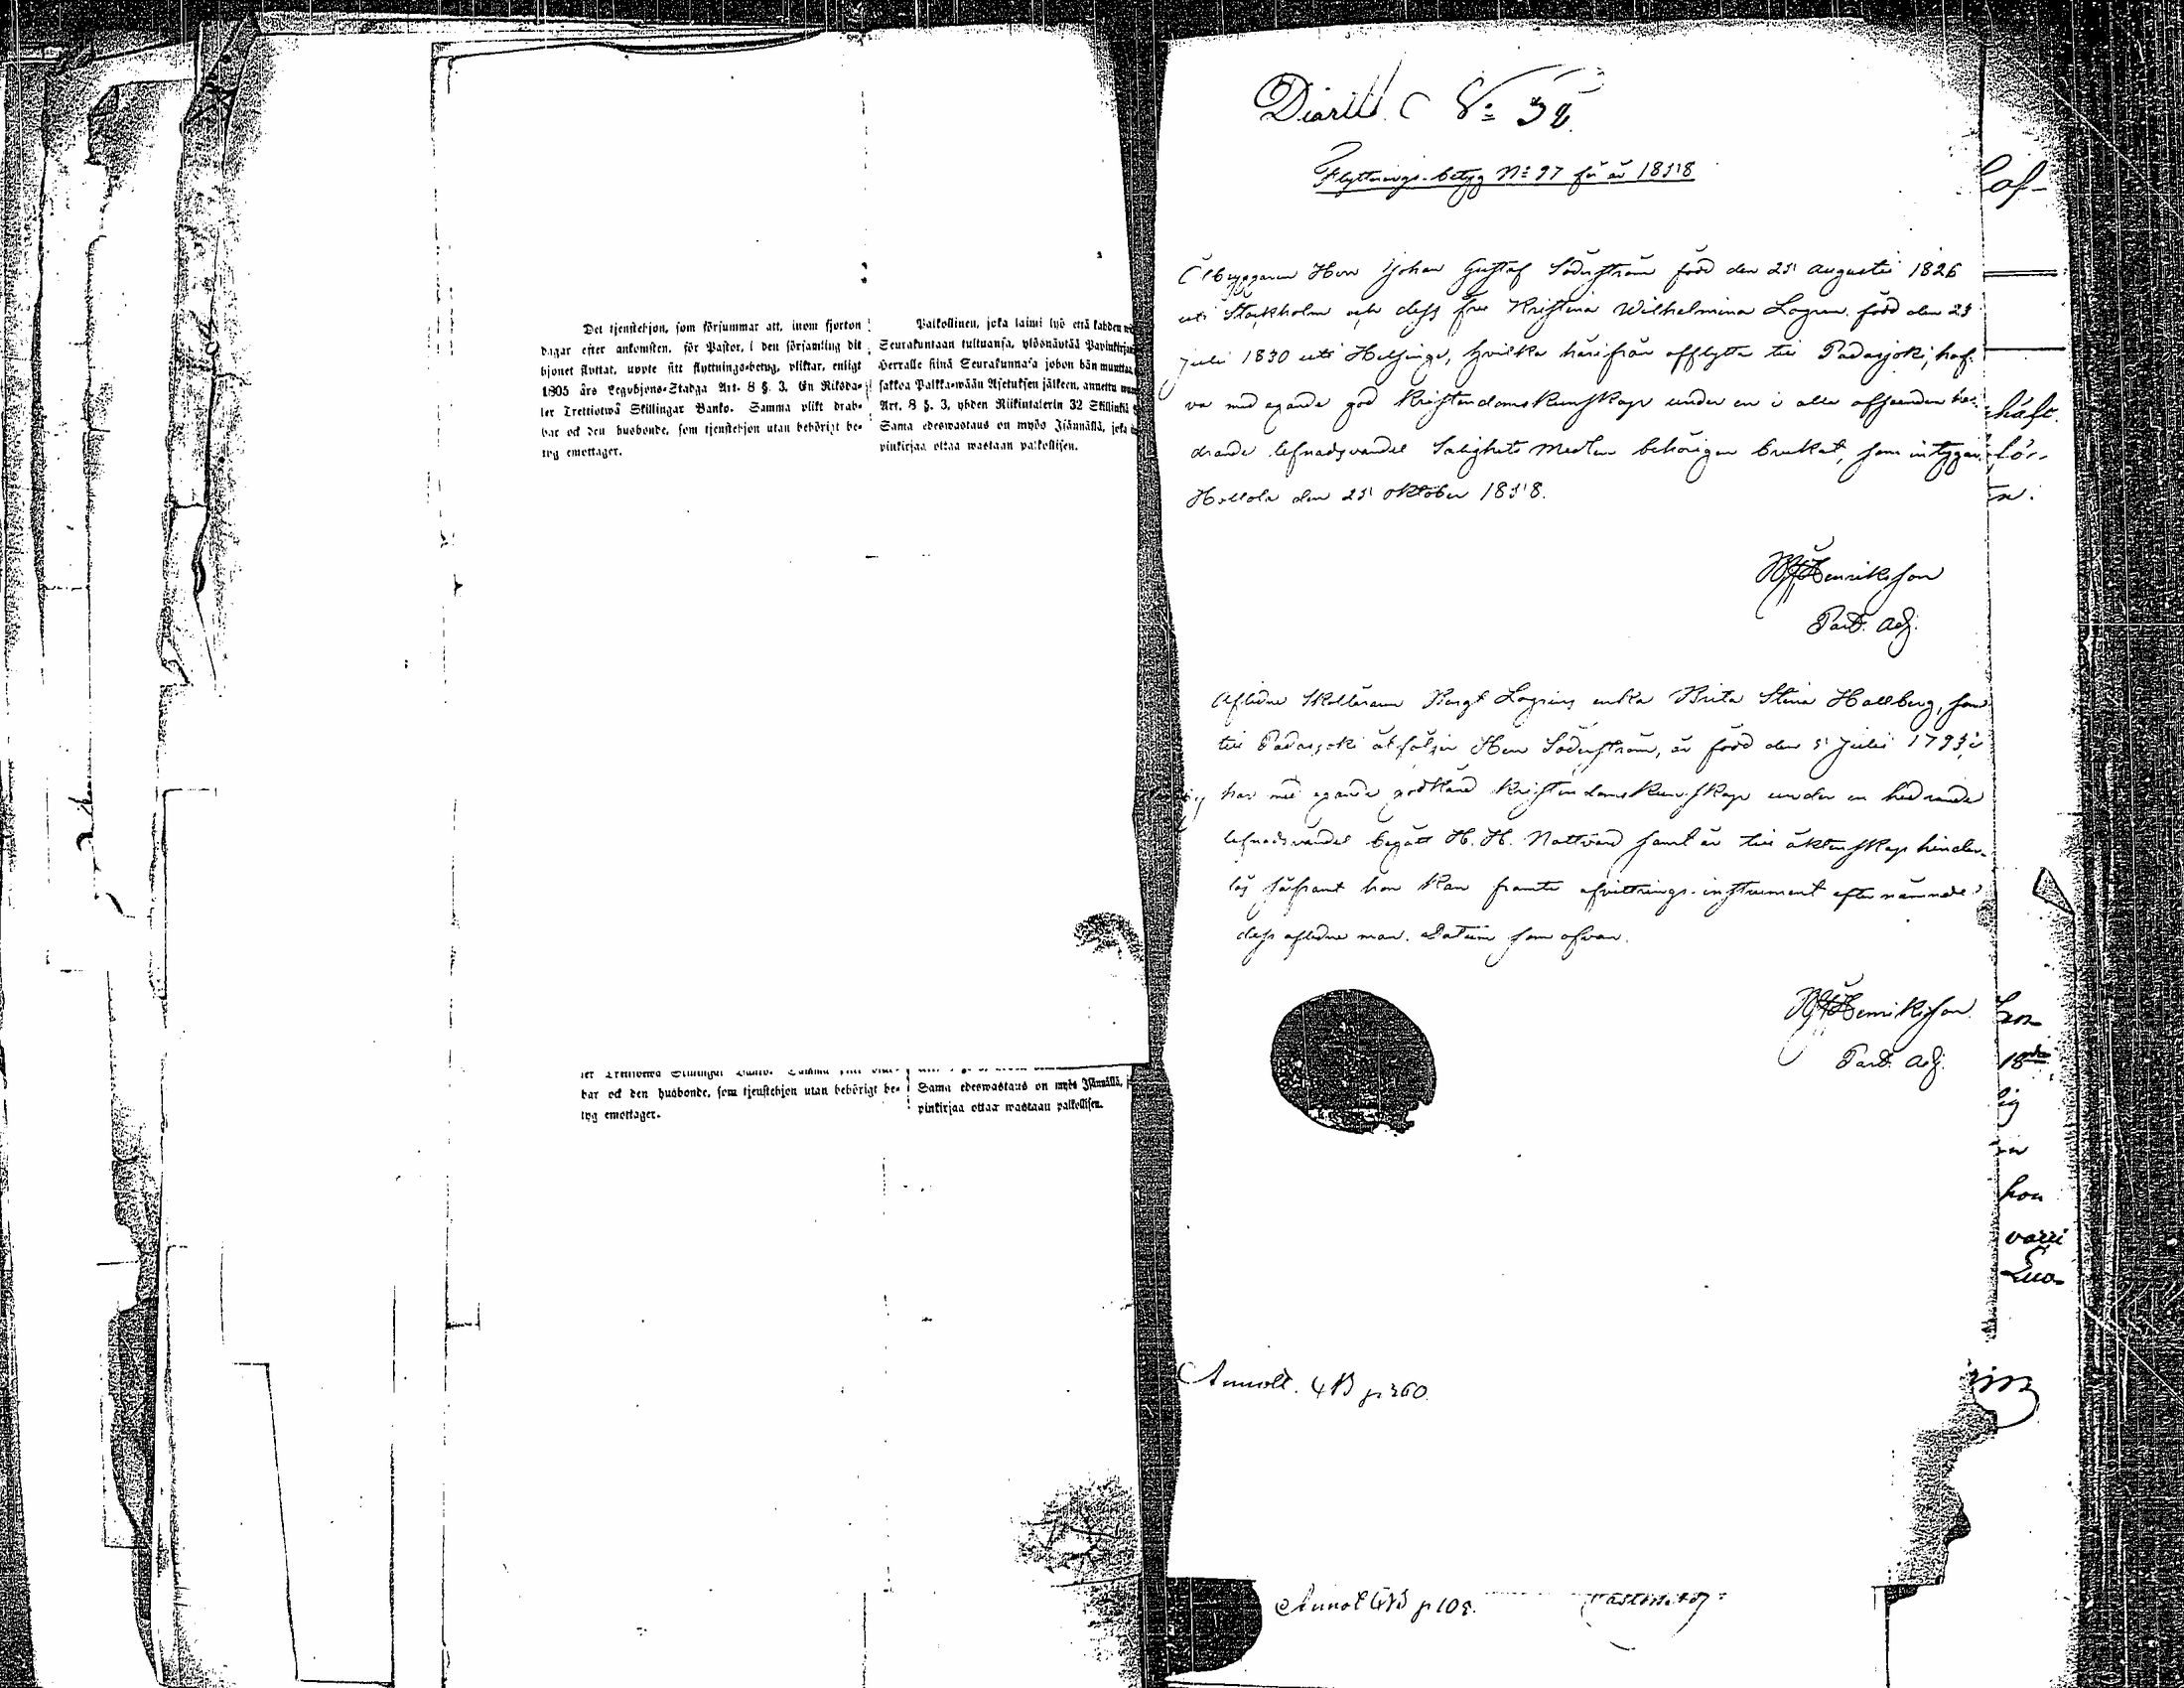 Det tjenstehjon, som försummar att, inom fjorton
dagar efter ankomsten, för Pastor, i den församling dit
hjonet flyttat, uppte sitt flyttnings-betyg, pliktar, enligt
1805 års Legohjons-Stadga Art. 8 §. 3, En Riksda-
ler Trettiotwå Skillingar Banko. Samma plikt drab-
bar ock den husbonde, som tjenstehjon utan behörigt be-
tyg emottager.
Palkollinen, joka laimi lyö että kahden
Seurakuntaan tultuansa, ylösnäyttää
Herralle siinä Seurakunna'a johon hän muuttaa
sakkoa Palkka-wään Asetuksen jälkeen, annettu
Art. 8 §. 3, yhden Riikintalerin 32 Skillinkiä
Sama edeswastaus on myös Isännällä, joka
pinkirjaa ottaa wastaan palkollisen.
bar ock den husbonde, som tjenstehjon utan behörigt be-
tyg emottager.
Sama edeswastaus on myös Isännällä,
pinkirjaa ottaa wastaan palkollisen.
Flyttnings-betyg N:o 97 för år 1858
Ölbryggaren Herr Johan Gustaf Söderström född den 25 Augusti 1826
uti Stockholm och dess fru Kristina Wilhelmina Logren, född den 23
Juli 1830 uti Helsinge, hvilka härifrån afflytta till Padasjoki, haf-
va med egande god Kristendomskunskap under en i alla afseenden he-
drande lefnadsvandel Salighets Medlen behörigen brukat, som intygar
Hollola den 25 Oktober 1858.
Henriksson
Past. Adj.
Aflidne Skolläraren Bengt Logrens enka Brita Stina Hallberg, som
till Padasjoki åtföljer Herr Söderström, är född den 5 Juli 1793,
har med egande godkänd Kristendomskunskap under en hedrande
lefnadsvandel begått H. H. Nattvard samt är till äktenskap hinder-
lös såframt hon kan framte afvittrings-instrument efter nämnde
dess aflidne man. Datum som ofvan.
Henriksson
Past. Adj.
Annott. 4B p 260.
Annot 4B p 10